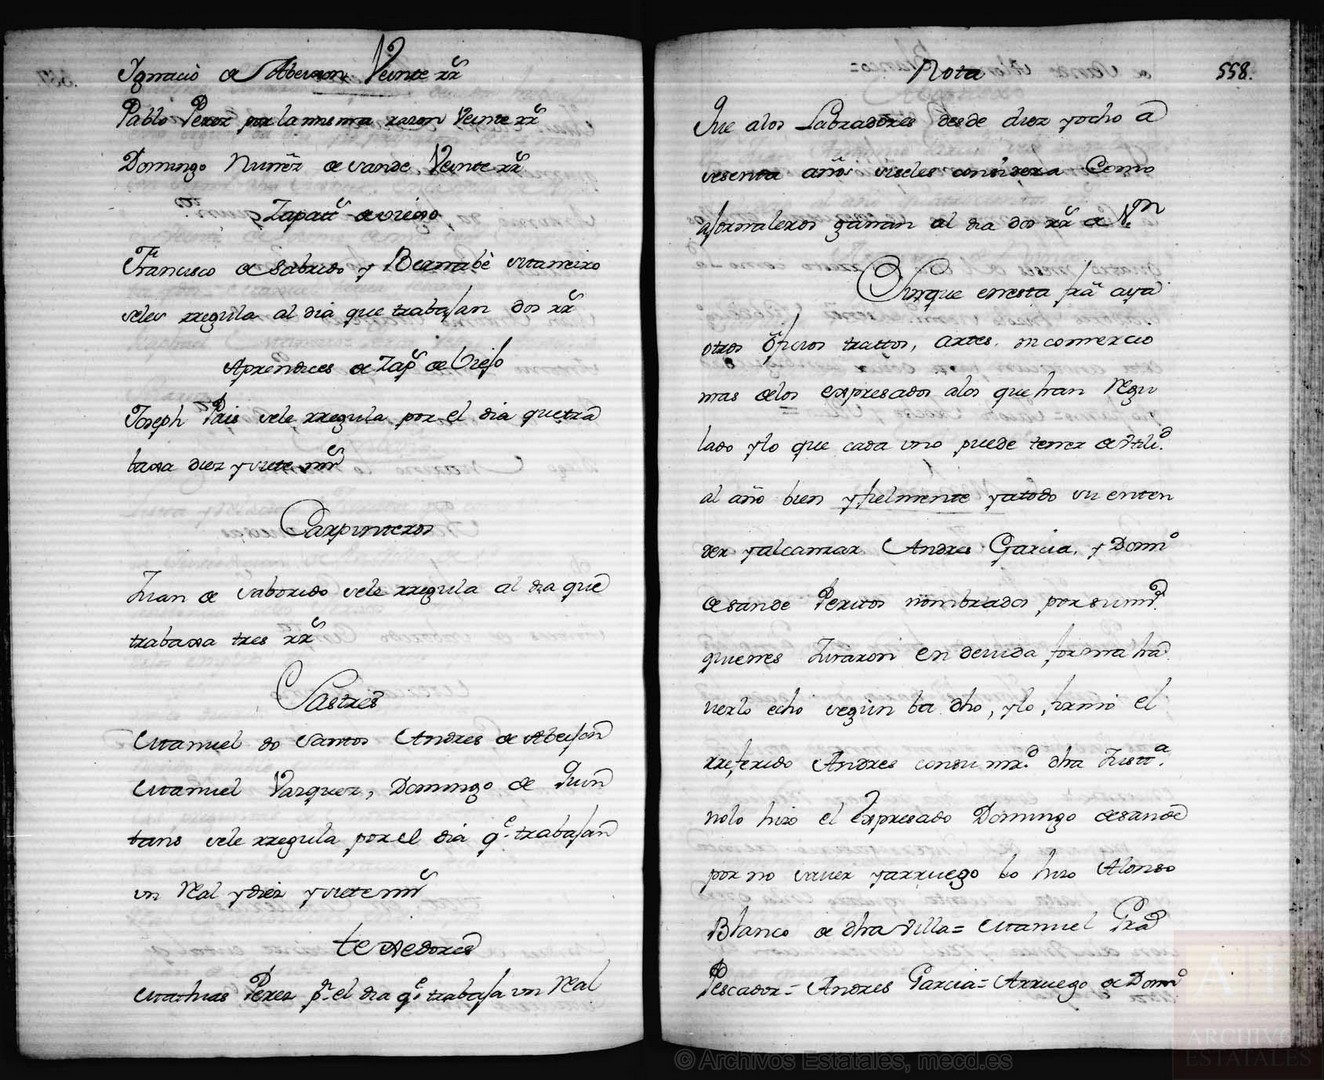 Ignacio de Abeixon Veinte rr.s
Pablo Perez por la misma razon Veinte rr.s
Domingo Nuñez de sande Veinte rr.s
Zapat.s de viejo
Francisco de Saborido y Bernabè Mtaneiro
seles rregula al dia que trabajan dos rr.s
Aprendices de Zap.s de Viejo
Joseph Pais sele rregula por el dia que tra
baxa diez y siete mrs
Carpinteros
Juan de saborido sele rregula al dia que
trabaxa tres rr.s
Sastres
Manuel do santos Andres de Abeijon
Manuel Vazquez, Domingo de Quin
tans sele rregula por el dia q.e trabajan
un Real y diez y siete mrs
texedores
Mathias Perez p.r el dia q.e trabaja un Real
Nota 558.
Que a los Labradores desde diez y ocho a
sesenta años se les considera Como
a Jornaleros ganan al dia dos rr.s de V.n
Aunque en esta fra aya
otros oficios trattos, artes, ni comercio
mas de los expresados a los que han Regu
lado y lo que cada uno puede tener de Utili.d
al año bien y fielmente y a todo su enten
der y alcanzar Andres Garcia, y Dom.o
de sande Peritos nombrados por su m.d
quienes Juraron en devida forma ha
verlo echo segun ba dho, y lo firmò el
rreferido Andres con su m.d dha Justt.a
no lo hizo el Expresado Domingo de sande
por no saver y a rruego lo hizo Alonso
Blanco de dha Villa = Manuel Gra
Pescador = Andres Garcia = A rruego de Dom.o
© Archivos Estatales, mecd.es
ARCHIVOS
ESTATALES